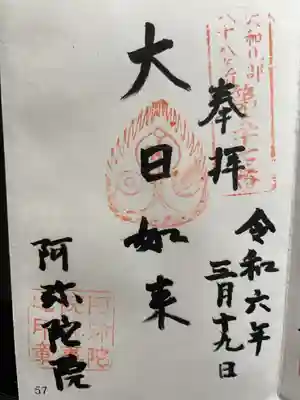 奉拝
令和六年
三月十九日
大日如来
阿弥陀院
57